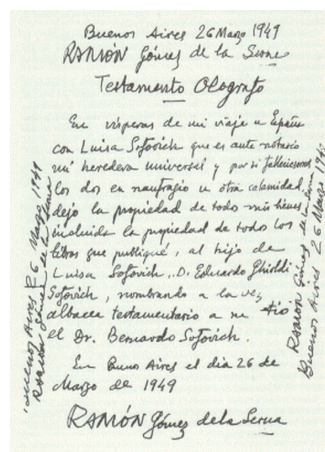 Buenos Aires 26 Marzo 1949
RAMÓN Gómez de la Serna
Testamento Ologrofo
En vísperas de mi viaje a España
con Luisa Sofovich que es ante notario
mi heredera universal y por si falleciesemos
los dos en naufragio u otra calamidad
dejo la propiedad de todos mis bienes,
incluida la propiedad de todos los
libros que publiqué, al hijo de
Luisa Sofovich, D. Eduardo Ghioldi
Sofovich, nombrando a la vez
albacea testamentario a su tío
el Dr. Bernardo Sofovich.
En Buenos Aires el dia 26 de
Marzo de 1949
RAMÓN Gómez de la Serna
Buenos Aires 26 Marzo 1949
RAMÓN Gómez de la Serna
RAMÓN Gómez de la Serna
Buenos Aires 26 Marzo 1949